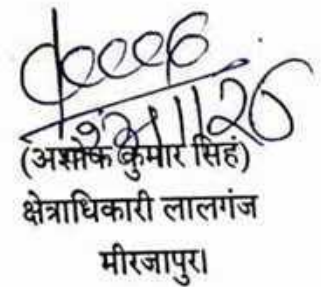 (अशोक कुमार सिहं)
क्षेत्राधिकारी लालगंज
मीरजापुर।